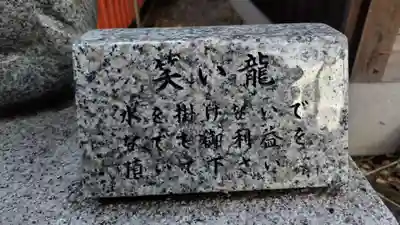 笑い龍
水を掛けないで
なでて御利益を
頂いて下さい